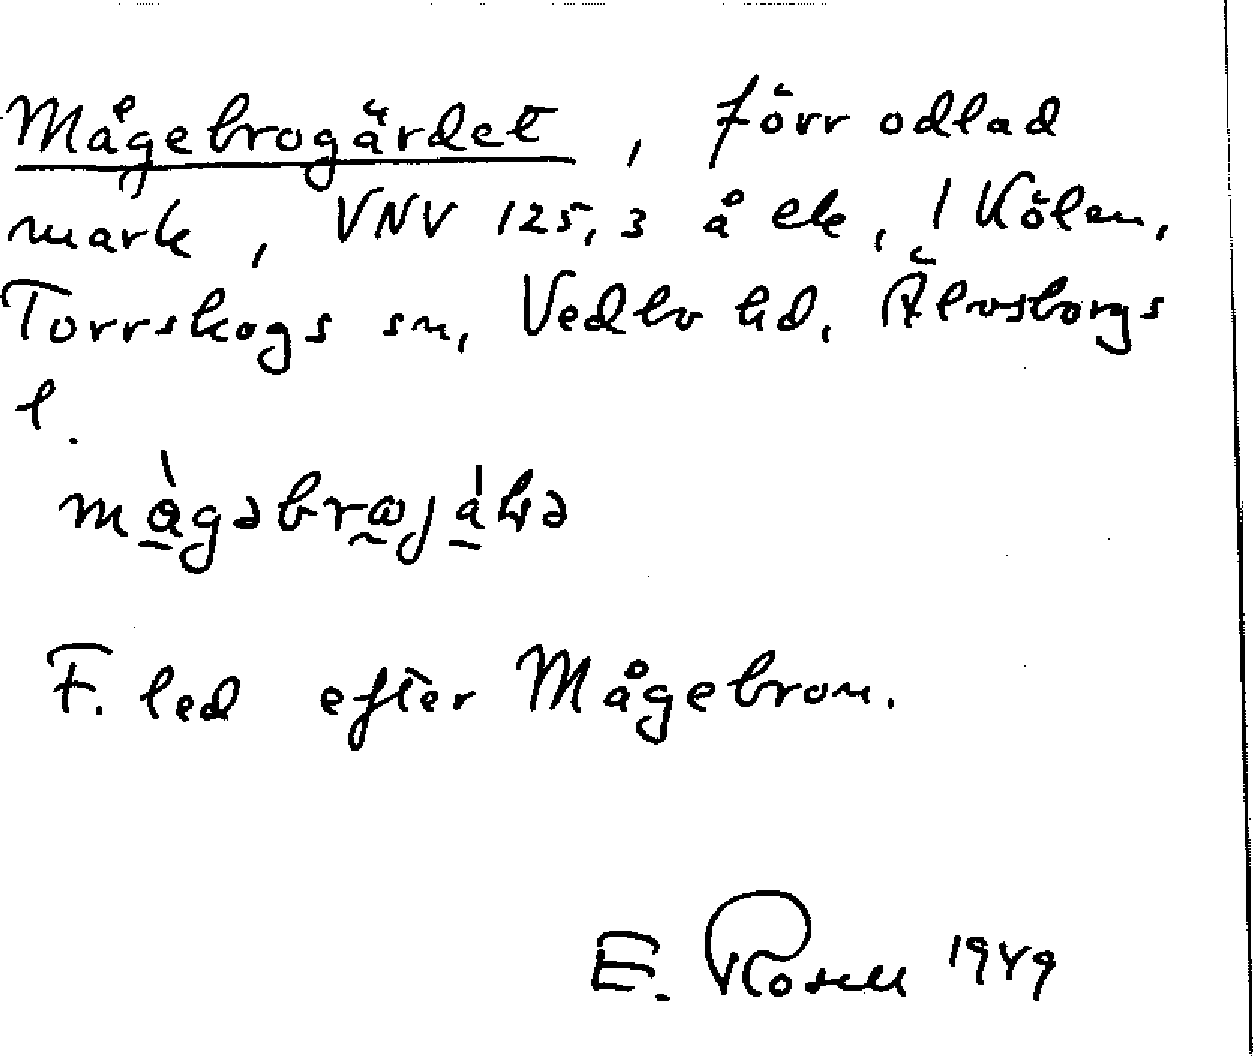 Mågebrogärdet, förr odlad
mark, VNV 125,3 å ek, 1 Kölen,
Torrskogs sn, Vedbo hd, Älvsborgs
l.
F. led efter Mågebron.
E. Rosell 1949